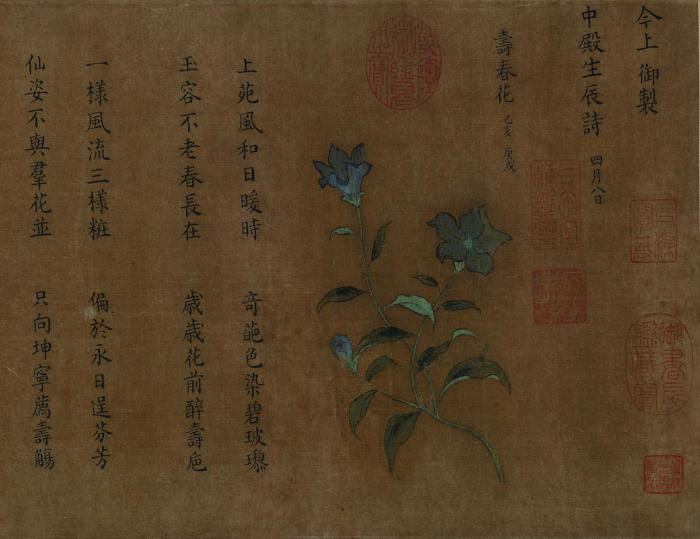 今上御製
中殿生辰詩 四月八日
壽春花 己亥 庚戌
上苑風和日暖時 奇葩色染碧玻瓈
玉容不老春長在 歳歳花前醉壽巵
一様風流三様粧 偏於永日逞芬芳
仙姿不與羣花並 只向坤寧薦壽觴